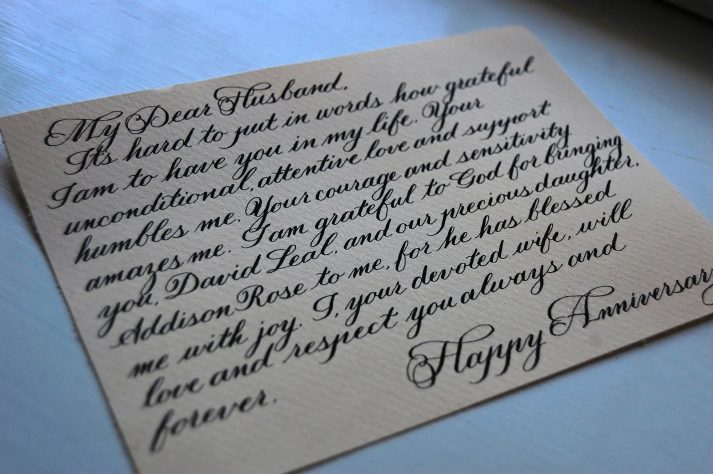 My Dear Husband,
It's hard to put in words how grateful
I am to have you in my life. Your
unconditional, attentive love and support
humbles me. Your courage and sensitivity
amazes me. I am grateful to God for bringing
you, David Leal, and our precious daughter,
Addison Rose to me, for he has blessed
me with joy. I, your devoted wife, will
love and respect you always and
forever.
Happy Anniversary